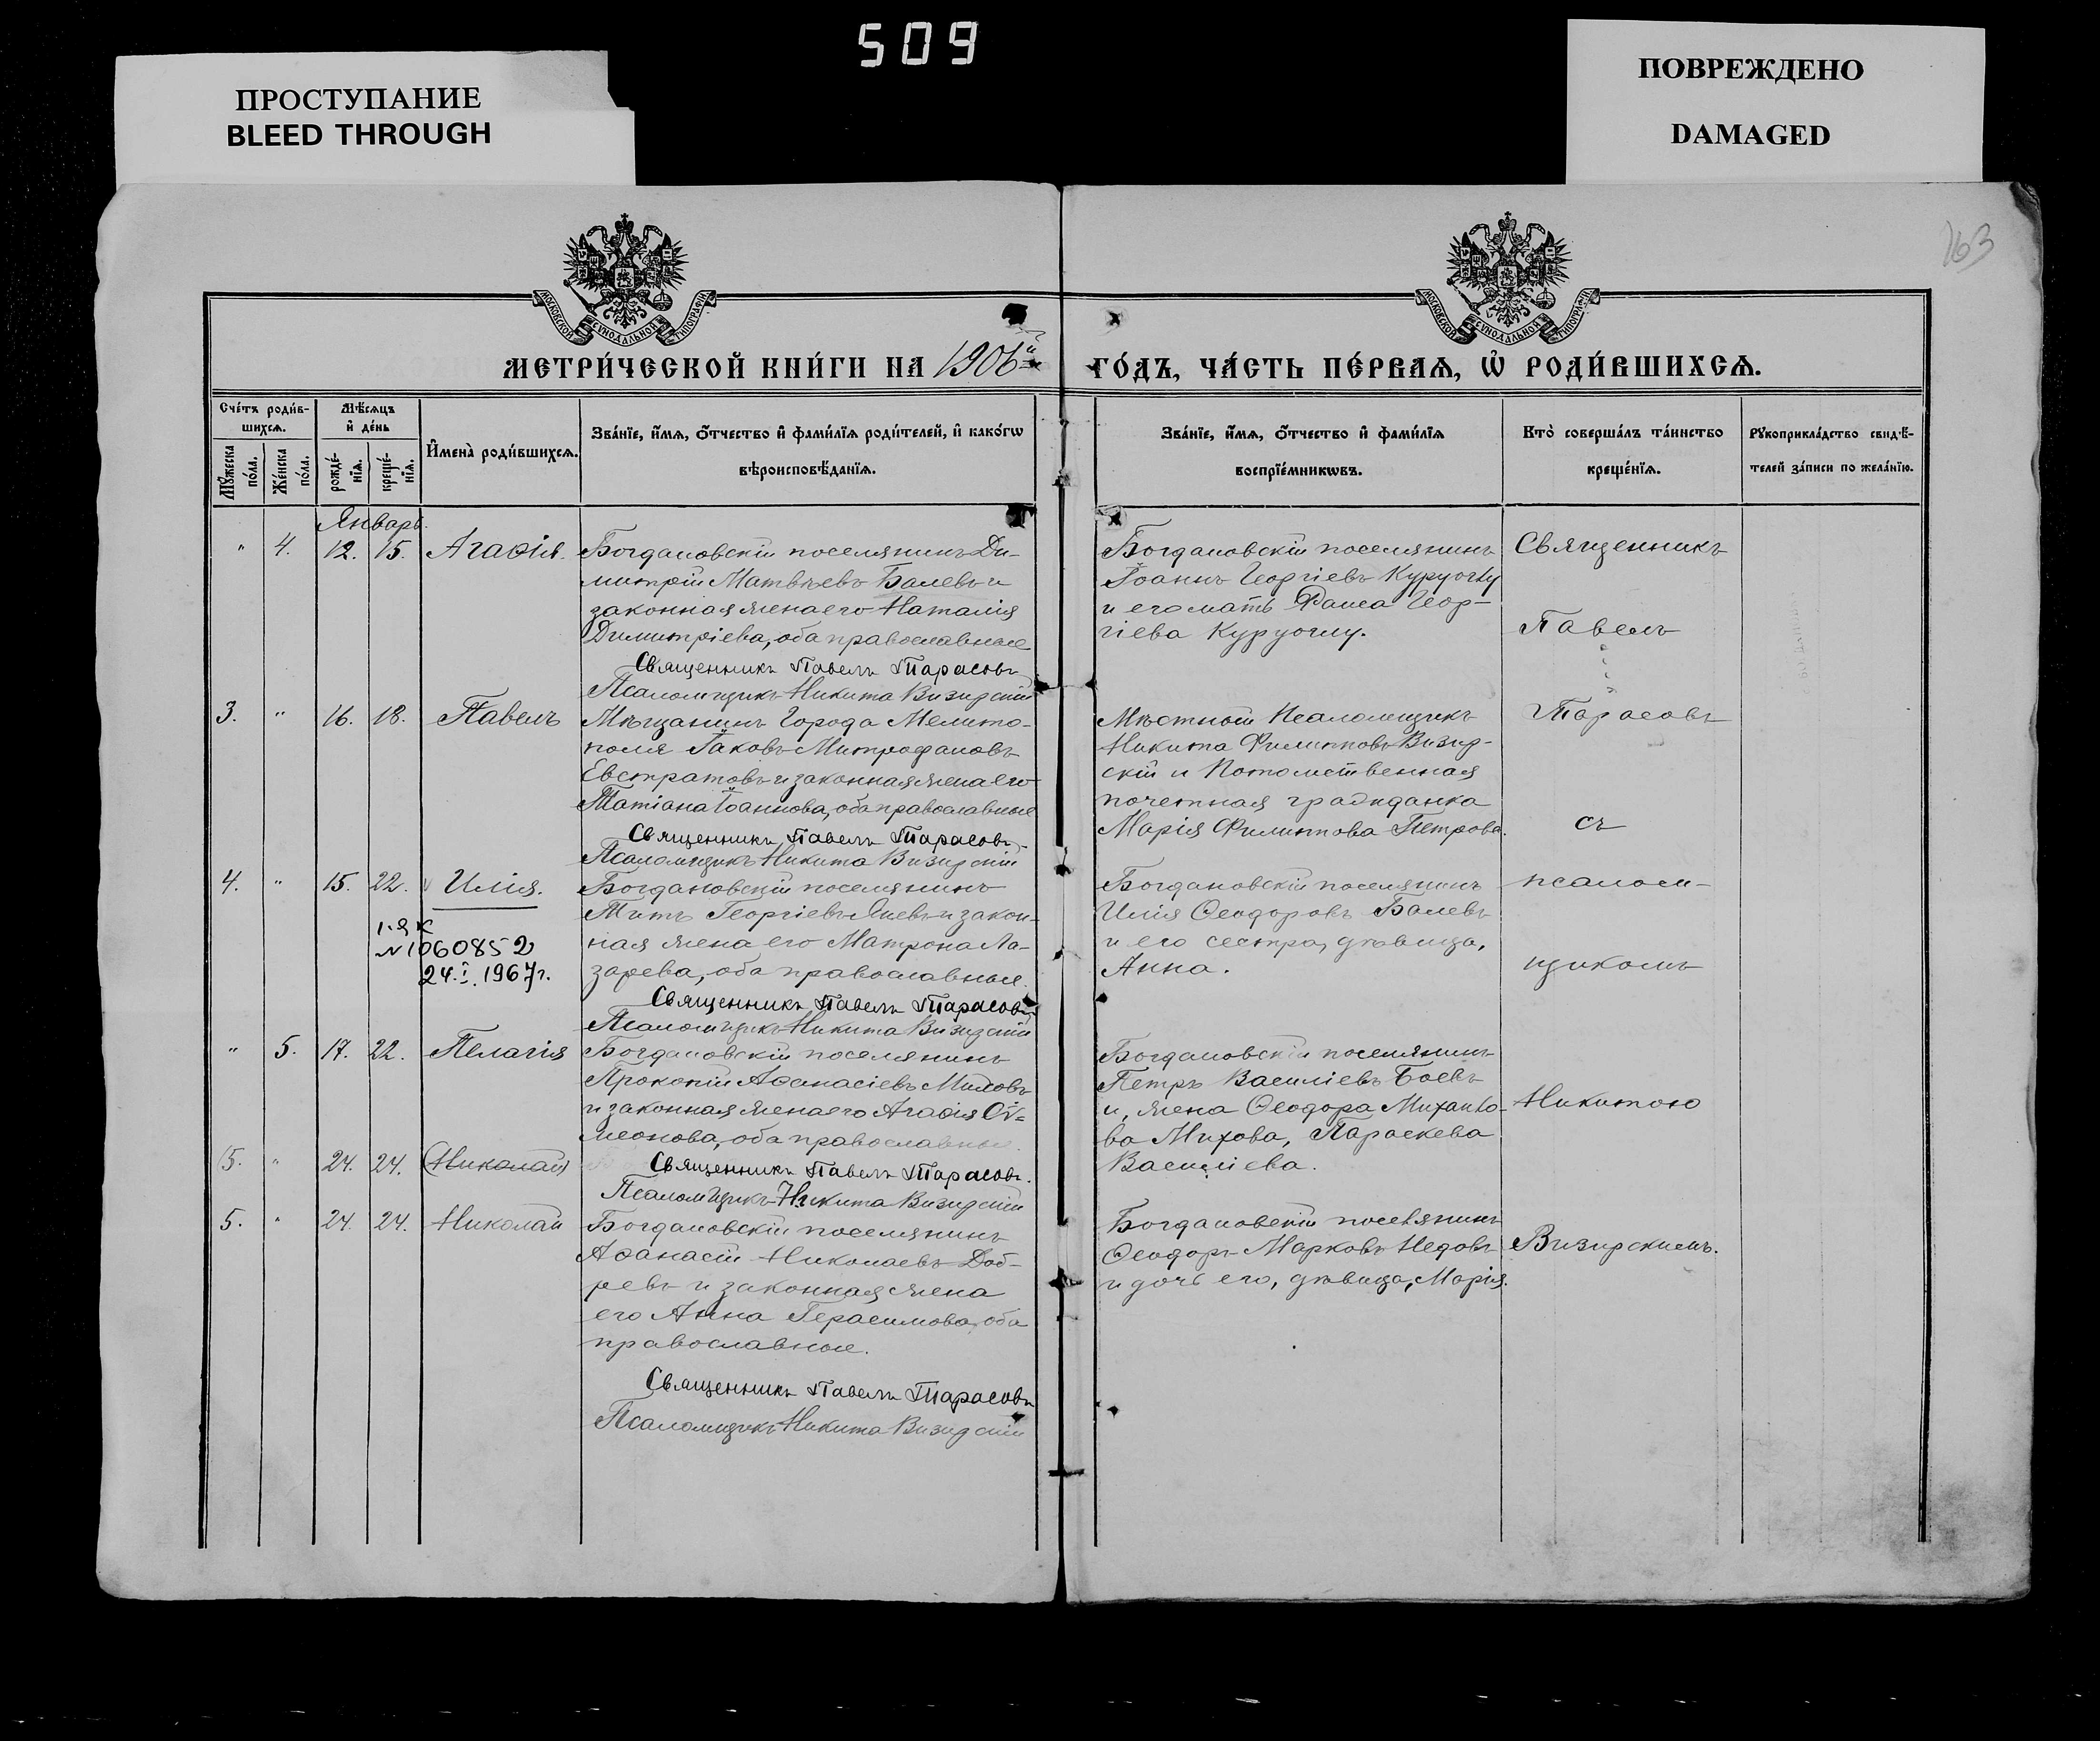 509
ПРОСТУПАНИЕ
BLEED THROUGH
ПОВРЕЖДЕНО
DAMAGED
163
МОСКОВСКОЙ СУНОДАЛЬНОЙ ТИПОГРАФІИ
МОСКОВСКОЙ СУНОДАЛЬНОЙ ТИПОГРАФІИ
МЕТРИ́ЧЕСКОЙ КНИ́ГИ НА 1906й ГО́ДЪ, ЧА́СТЬ ПЕ́РВАѦ, Ѡ҆ РОДИ́ВШИХСѦ.
Сче́тъ роди́в-
шихсѧ.
Мꙋ́жеска по́ла.
Же́нска по́ла.
Мѣ́сѧцъ
и҆ де́нь
рожде́-
нїѧ.
креще́-
нїѧ.
И҆мена̀ роди́вшихсѧ.
Зва́нїе, и҆́мѧ, ѻ҆́тчество и҆ фами́лїѧ роди́телей, и҆ како́гѡ
вѣроисповѣ́данїѧ.
Зва́нїе, и҆́мѧ, ѻ҆́тчество и҆ фами́лїѧ
воспрїе́мникѡвъ.
Кто̀ соверша́лъ та́инство
креще́нїѧ.
Рꙋкоприкла́дство свидѣ́-
телей за́писи по жела́нїю.
Январь.
" 4. 12. 15. Агаѳія.
Богдановскій поселянинъ Ди-
митрій Матвѣевъ Балевъ и
законная жена его Наталія
Димитріева, оба православные
Священникъ Павелъ Тарасовъ
Псаломщикъ Никита Визирскій
Богдановскій поселянинъ
Іоаннъ Георгіевъ Куруоглу
и его мать Геор-
гіева Куруоглу.
Священникъ
Павелъ
3. " 16. 18. Павелъ
Мѣщанинъ города Мелито-
поля Іаковъ Митрофановъ
Евстратовъ и законная жена его
Татіана Іоаннова, оба православные
Священникъ Павелъ Тарасовъ
Псаломщикъ Никита Визирскій
Мѣстный Псаломщикъ
Никита Филипповъ Визир-
скій и Потомственная
почетная гражданка
Марія Филиппова Петрова.
Тарасовъ
съ
4. " 15. 22. Илія.
1-ЯК
N1060852
24.I.1967г.
Богдановскій поселянинъ
Георгіевъ Яневъ и закон-
ная жена его Матрона Ла-
зарева, оба православные.
Священникъ Павелъ Тарасовъ
Псаломщикъ Никита Визирскій
Богдановскій поселянинъ
Илія Ѳеодоровъ Балевъ
и его сестра, дѣвица,
Анна.
псалом-
щикомъ
" 5. 17. 22. Пелагія
Богдановскій поселянинъ
Прокопій Аѳанасіевъ Милковъ
и законная жена его Агаѳія Сѵ-
меонова, оба православные.
Священникъ Павелъ Тарасовъ.
Псаломщикъ Никита Визирскій
Богдановскій поселянинъ
Петръ Василіевъ Боевъ
и, жена Ѳеодора Михайло-
ва Михова, Параскева
Василіева.
Никитою
(5. " 24. 24. (Николай)
5. " 24. 24. Николай
Богдановскій поселянинъ
Аѳанасій Николаевъ Доб-
ревъ и законная жена
его Анна Герасимова, оба
православные.
Священникъ Павелъ Тарасовъ
Псаломщикъ Никита Визирскій
Богдановскій поселянинъ
Ѳеодоръ Марковъ Недовъ
и дочь его, дѣвица, Марія.
Визирскимъ.